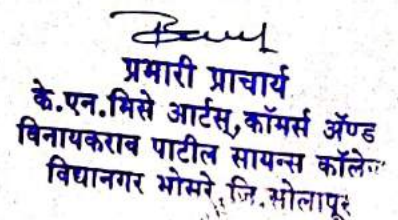 प्रभारी प्राचार्य
के.एन.भिसे आर्टस्,कॉमर्स ॲण्ड
विनायकराव पाटील सायन्स कॉलेज
विद्यानगर भोसरे, जि.सोलापूर